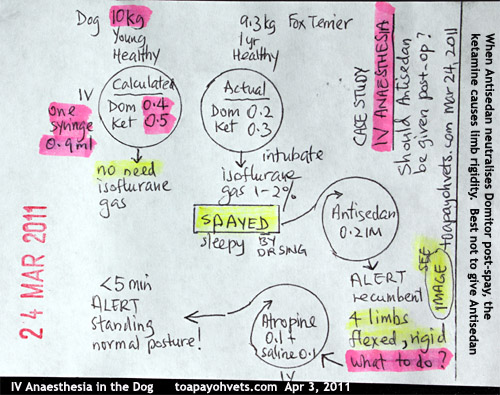 Dog 10kg
Young
Healthy
Calculated
Dom 0.4
Ket 0.5
IV
one
syringe
0.9ml
no need
isoflurane
gas
9.3kg Fox Terrier
1yr
Healthy
Actual
Dom 0.2
Ket 0.3
intubate
isoflurane
gas 1-2%
SPAYED
sleepy BY
DR SING
Antisedan
0.2 IM
ALERT
recumbent
4 limbs
flexed, rigid
what to do?
Atropine
0.1 +
saline 0.1
IV
<5 min
ALERT
standing
normal posture!
CASE STUDY
IV ANAESTHESIA
Should Antisedan
be given post-op?
toapayohvets.com Mar 24, 2011
SEE
IMAGE
When Antisedan neutralises Domitor post-spay, the
ketamine causes limb rigidity. Best not to give Antisedan
24 MAR 2011
IV Anaesthesia in the Dog toapayohvets.com Apr 3, 2011